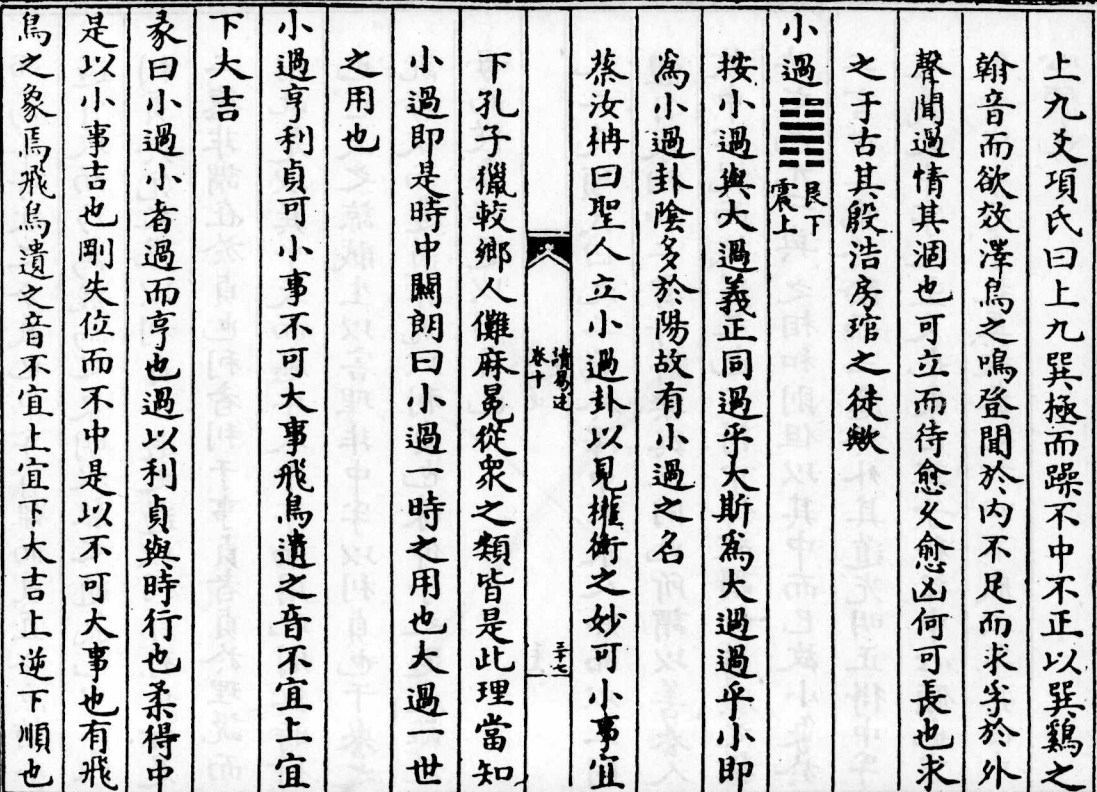 上九爻項氏曰上九巽極而躁不中不正以巽鷄之
翰音而欲放澤鳥之鳴登聞於內不足而求孚於外
聲聞過情其涸也可立而待愈久愈凶何可長也求
之于古其殷浩房琯之徒歟
小過䷽艮下震上
按小過與大過義正同過乎大斯爲大過過乎小即
爲小過卦陰多於陽故有小過之名
蔡汝柟曰聖人立小過卦以見權衡之妙可小事宜
讀易述
卷十
三七
下孔子獵較鄉人儺麻冕從衆之類皆是此理當知
小過即是時中關朗曰小過一時之用也大過一世
之用也
小過亨利貞可小事不可大事飛鳥遺之音不宜上宜
下大吉
彖曰小過小者過而亨也過以利貞與時行也柔得中
是以小事吉也剛失位而不中是以不可大事也有飛
鳥之象焉飛鳥遺之音不宜上宜下大吉上逆下順也